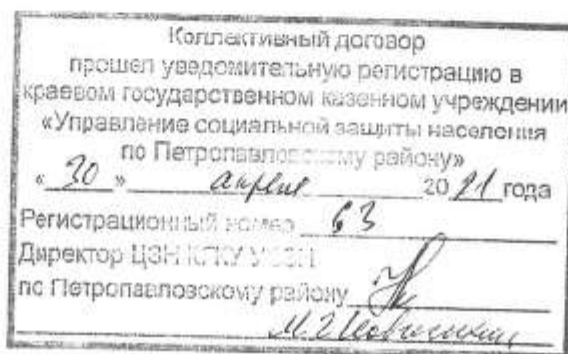 Коллективный договор
прошел уведомительную регистрацию в
краевом государственном казенном учреждении
«Управление социальной защиты населения
по Петропавловскому району»
« 30 » апреля 20 21 года
Регистрационный номер 63
Директор ЦЗН КГКУ УСЗН
по Петропавловскому району